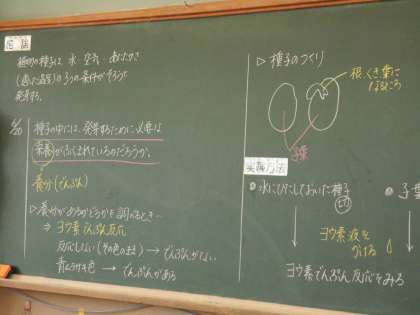 結論
植物の種子は、水・空気・あたたかさ
(適した温度)の3つの条件がそろうと
発芽する。
種子の中には、発芽するために必要な
栄養がふくまれているのだろうか。
養分(でんぷん)
▷養分があるかどうかを調べるとき…
⇒ヨウ素でんぷん反応
反応しない(その色のまま)→でんぷんがない
青むらさき色→でんぷんがある
▷種子のつくり
根・くき・葉に
なるところ
子葉
実験方法
●水にひたしておいた種子
●子葉
ヨウ素液を
かける
ヨウ素でんぷん反応をみる